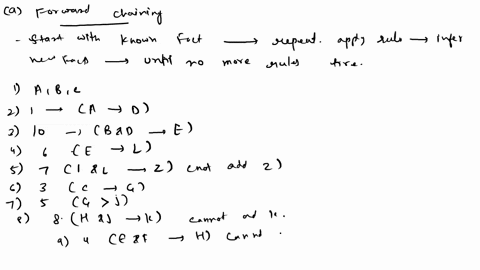 (a) Forward chaining
- Start with known fact → repeat. apply rule → infer
new fact → until no more rules fire.
1) A, B, C
2) 1 → (A → D)
3) 10 → (B & D → E)
4) 6 (E → L)
5) 7 (I & L → Z) (not add Z)
6) 3 (C → G)
7) 5 (G > J)
8) 8. (H & J → K) cannot add K.
9) 4 (E & F → H) cannot.